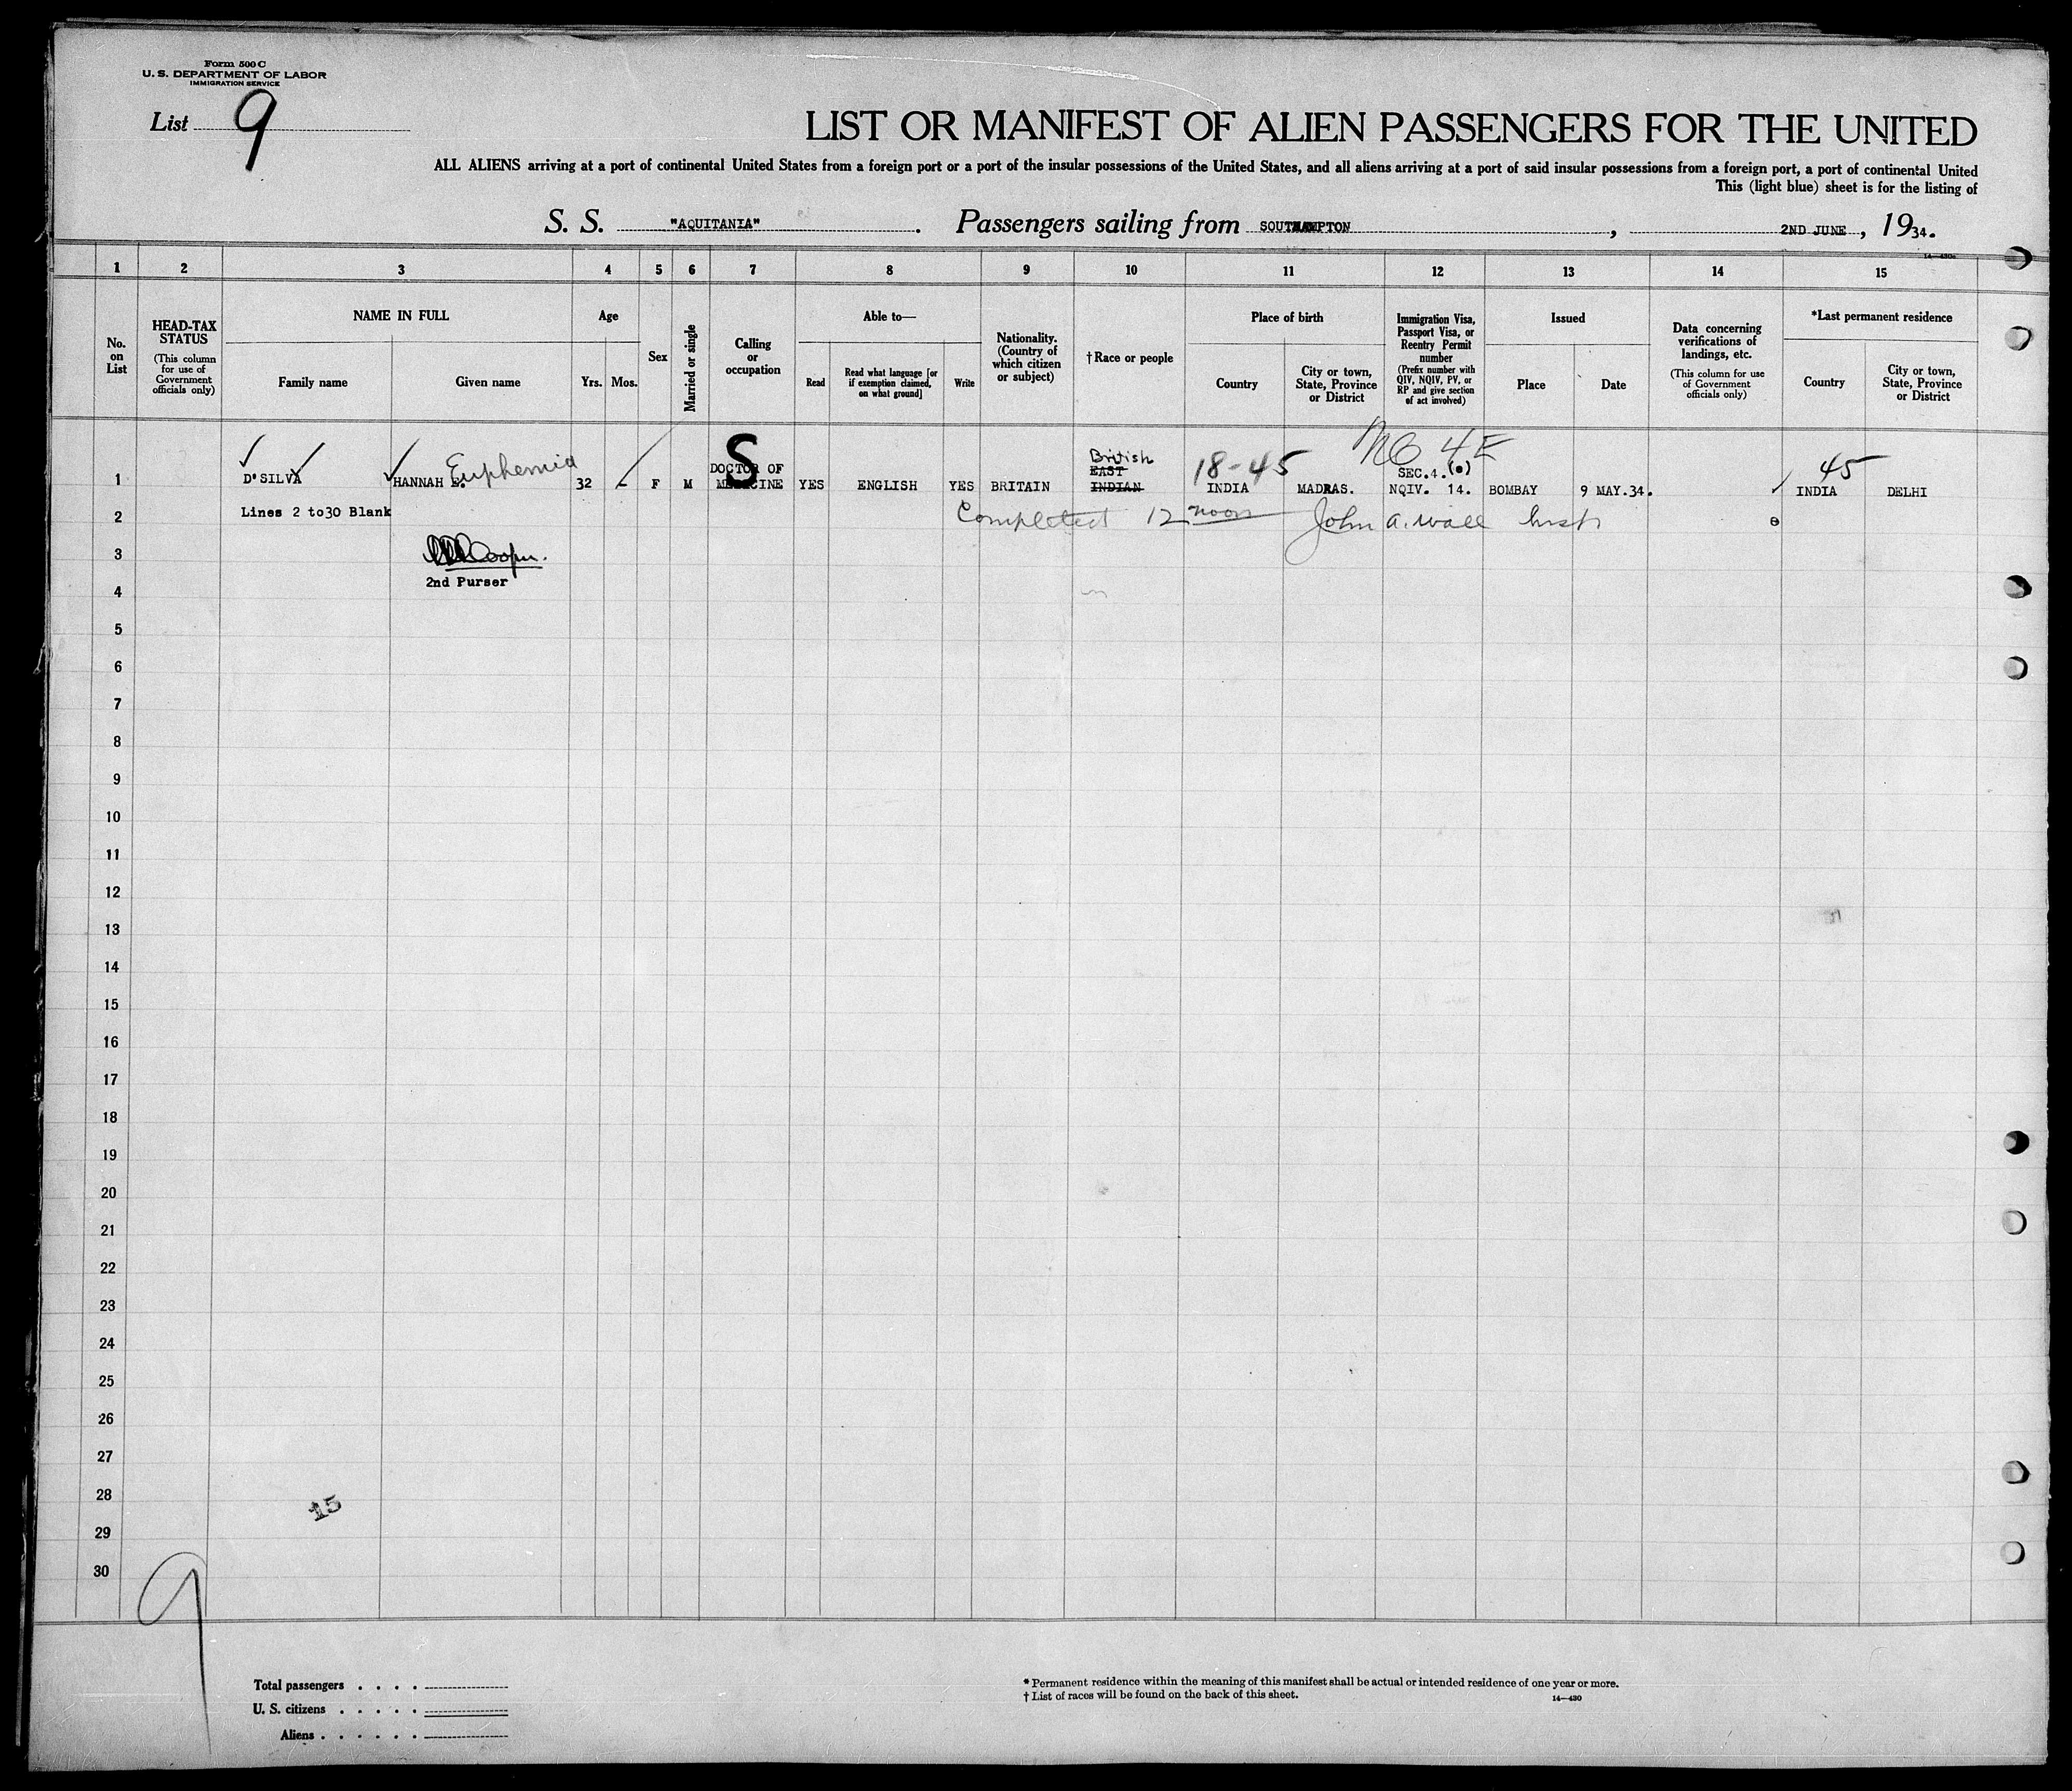 Form 500 C
U. S. DEPARTMENT OF LABOR
IMMIGRATION SERVICE
List 9
LIST OR MANIFEST OF ALIEN PASSENGERS FOR THE UNITED
ALL ALIENS arriving at a port of continental United States from a foreign port or a port of the insular possessions of the United States, and all aliens arriving at a port of said insular possessions from a foreign port, a port of continental United
This (light blue) sheet is for the listing of
S. S. "AQUITANIA". Passengers sailing from SOUTHAMPTON, 2ND JUNE, 1934.
1 2 3 4 5 6 7 8 9 10 11 12 13 14 15
No. on List
HEAD-TAX STATUS
(This column for use of Government officials only)
NAME IN FULL
Family name
Given name
Age
Yrs.
Mos.
Sex
Married or single
Calling or occupation
Able to—
Read
Read what language [or if exemption claimed, on what ground]
Write
Nationality. (Country of which citizen or subject)
†Race or people
Place of birth
Country
City or town, State, Province or District
Immigration Visa, Passport Visa, or Reentry Permit number
(Prefix number with QIV, NQIV, PV, or RP and give section of act involved)
Issued
Place
Date
Data concerning verifications of landings, etc.
(This column for use of Government officials only)
*Last permanent residence
Country
City or town, State, Province or District
S British 18-45 4E 45
DOCTOR OF EAST SEC.4.(e)
1 D'SILVA HANNAH E. Euphemia 32 - F M MEDICINE YES ENGLISH YES BRITAIN INDIAN INDIA MADRAS. NQIV. 14. BOMBAY 9 MAY.34. INDIA DELHI
2 Lines 2 to30 Blank Completed 12 noon John A. Wall
3 Cooper.
2nd Purser
4
5
6
7
8
9
10
11
12
13
14
15
16
17
18
19
20
21
22
23
24
25
26
27
28
15
29
30
9
Total passengers . . . .
U. S. citizens . . . . .
Aliens . . . . . .
* Permanent residence within the meaning of this manifest shall be actual or intended residence of one year or more.
† List of races will be found on the back of this sheet.
14—430